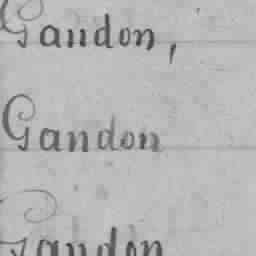 Gandon,
Gandon
Gandon